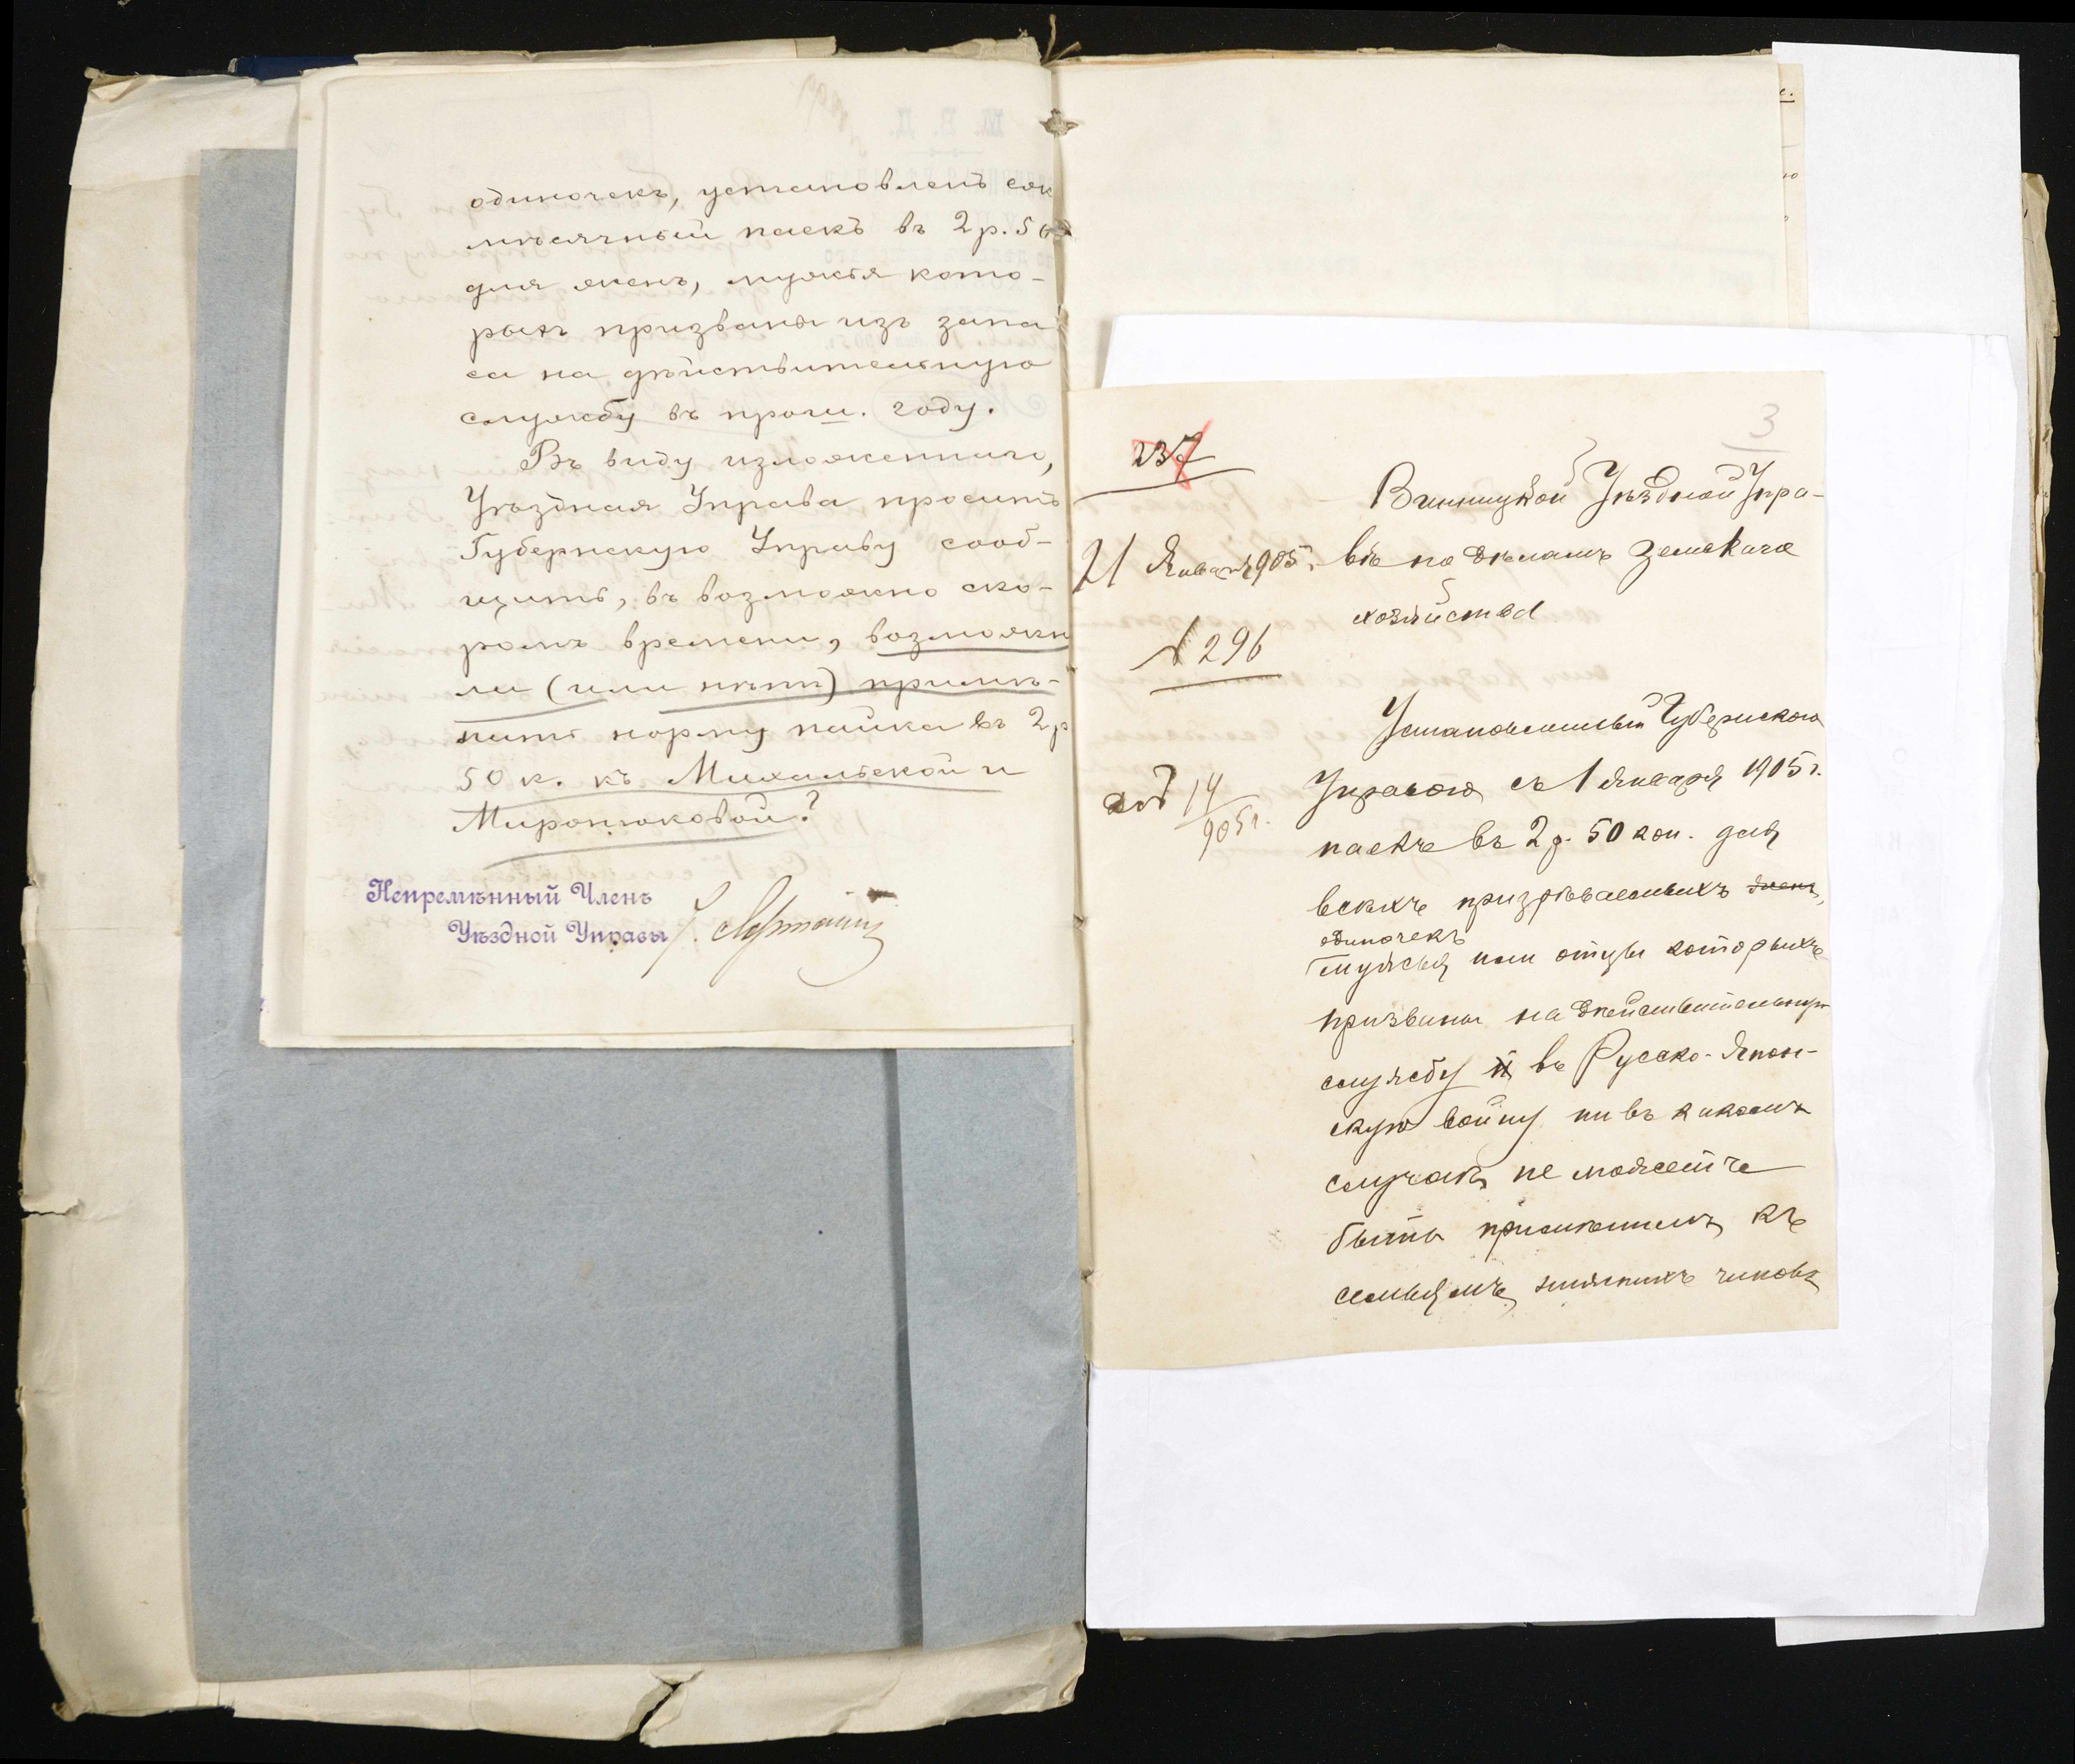 одиночекъ, установленъ еже
мѣсячный паекъ въ 2 р. 50
для женъ, мужья кото-
рыхъ призваны изъ запа
са на дѣйствительную
службу въ прош. году.
Въ виду изложеннаго,
Уѣздная Управа проситъ
Губернскую Управу сооб-
щить, въ возможно ско-
ромъ времени, возможн
ли (или нѣтъ) примѣ-
нить норму пайка въ 2 р
50 к. къ Михальской и
Миронюковой?
Непремѣнный Членъ
Уѣздной Управы
3
237
Винницкой Уѣздной Упра-
21 Января 1905 г.
вѣ по дѣламъ земскаго
хозяйства
№ 296
Установленный Губернскою
Управою съ 1 Января 1905 г.
14/905 г.
паекъ въ 2 р. 50 коп. для
всѣхъ призрѣваемыхъ женъ,
одиночекъ
мужья или отцы которыхъ
призваны на дѣйствительную
службу въ Русско-Япон-
скую войну ни въ какомъ
случаѣ не можетъ
быть примѣненъ къ
семьямъ нижнихъ чиновъ